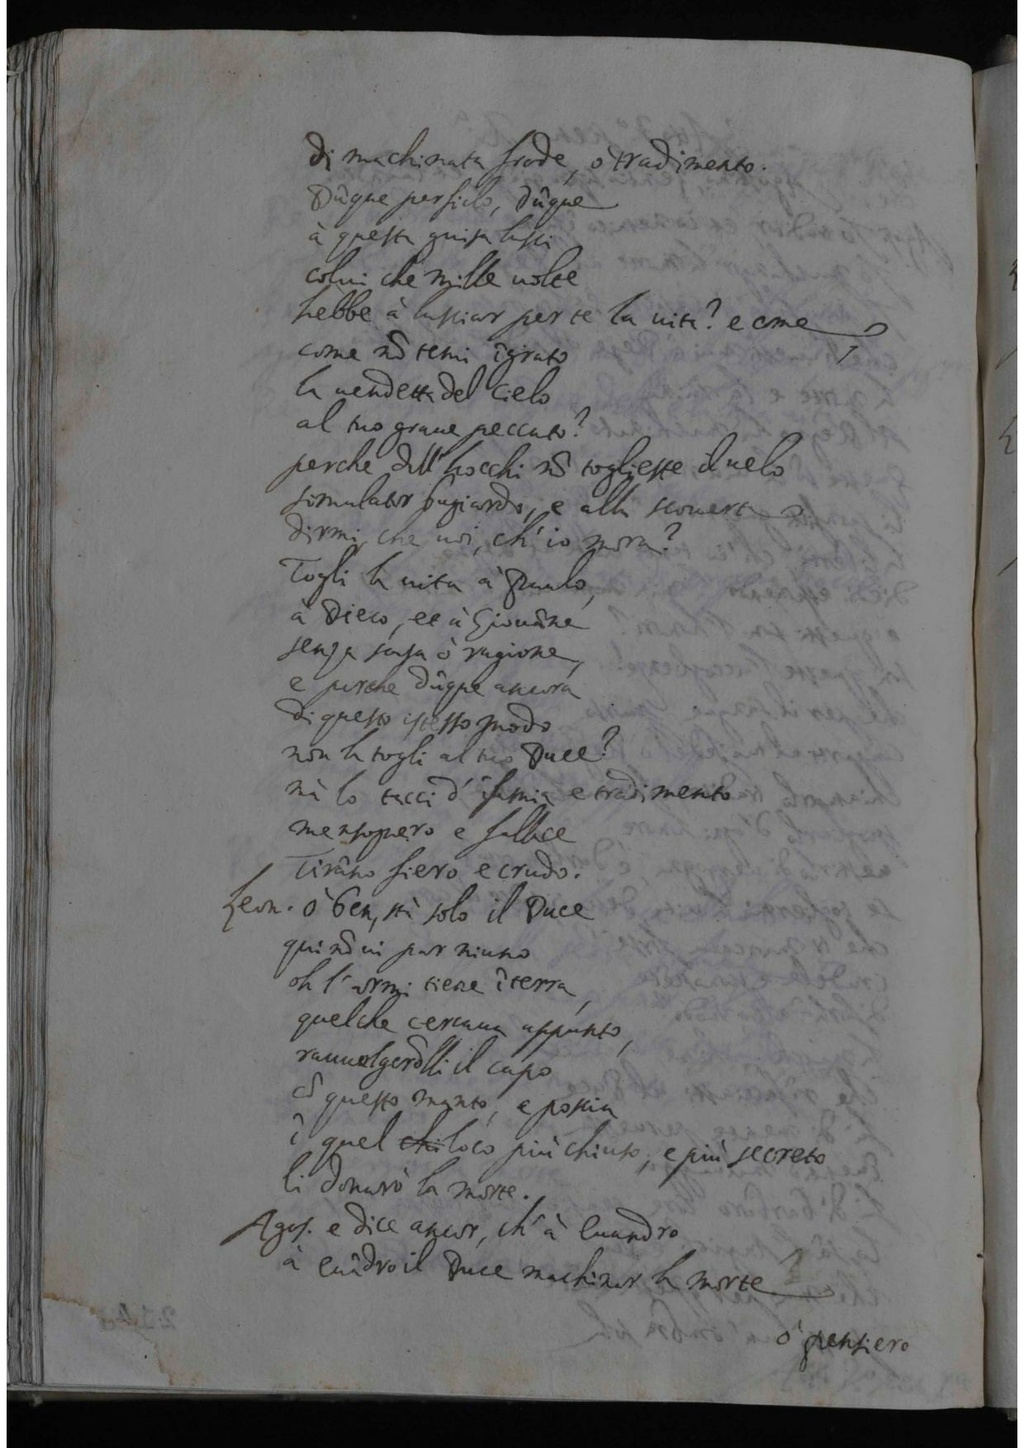 di machinata frode, ò tradimento.
Dũque perfido, dũque
à questa guisa lassi
colui che mille uolte
hebbe à lassiar per te la uita? e come
come nõ temi ĩgrato
la uendetta del Cielo
al tuo graue peccato?
perche dall'hocchi nõ togliesse il uelo
simulator bugiardo, e alla scouerta
dirmi, che uoi, ch'io mora?
Togli la uita à Paulo,
à Dieco, et à Giouãne
senza scusa ò ragione,
e perche dũque ancora
di questo istesso modo
non la togli al tuo Duce?
mà lo tacci d'ĩfamia e tradimento
mensogniero e fallace
Tirãno fiero e crudo.
Leon. ò ben, stà solo il Duce
qui nõ ui par niuno
oh l'armi tiene ĩ terra,
quel che cercaua appunto,
rauuolgerolli il capo
cõ questo manto, e poscia
ĩ quel loco più chiuso, e più secreto
li donarò la morte.
Agos. e dice ancor, ch'à Euandro
à Euãdro il Duce machinar la morte
ò pensiero